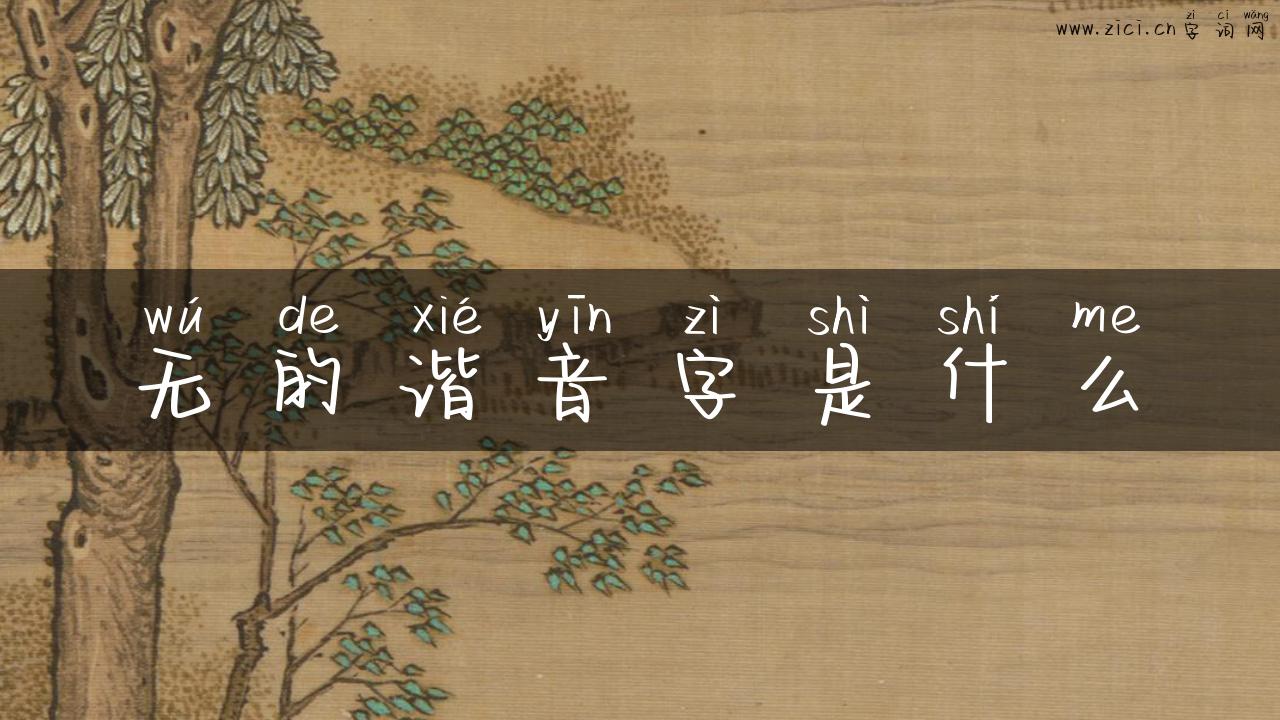 zì cí wǎng
www.zici.cn 字词网
wú de xié yīn zì shì shí me
无的谐音字是什么